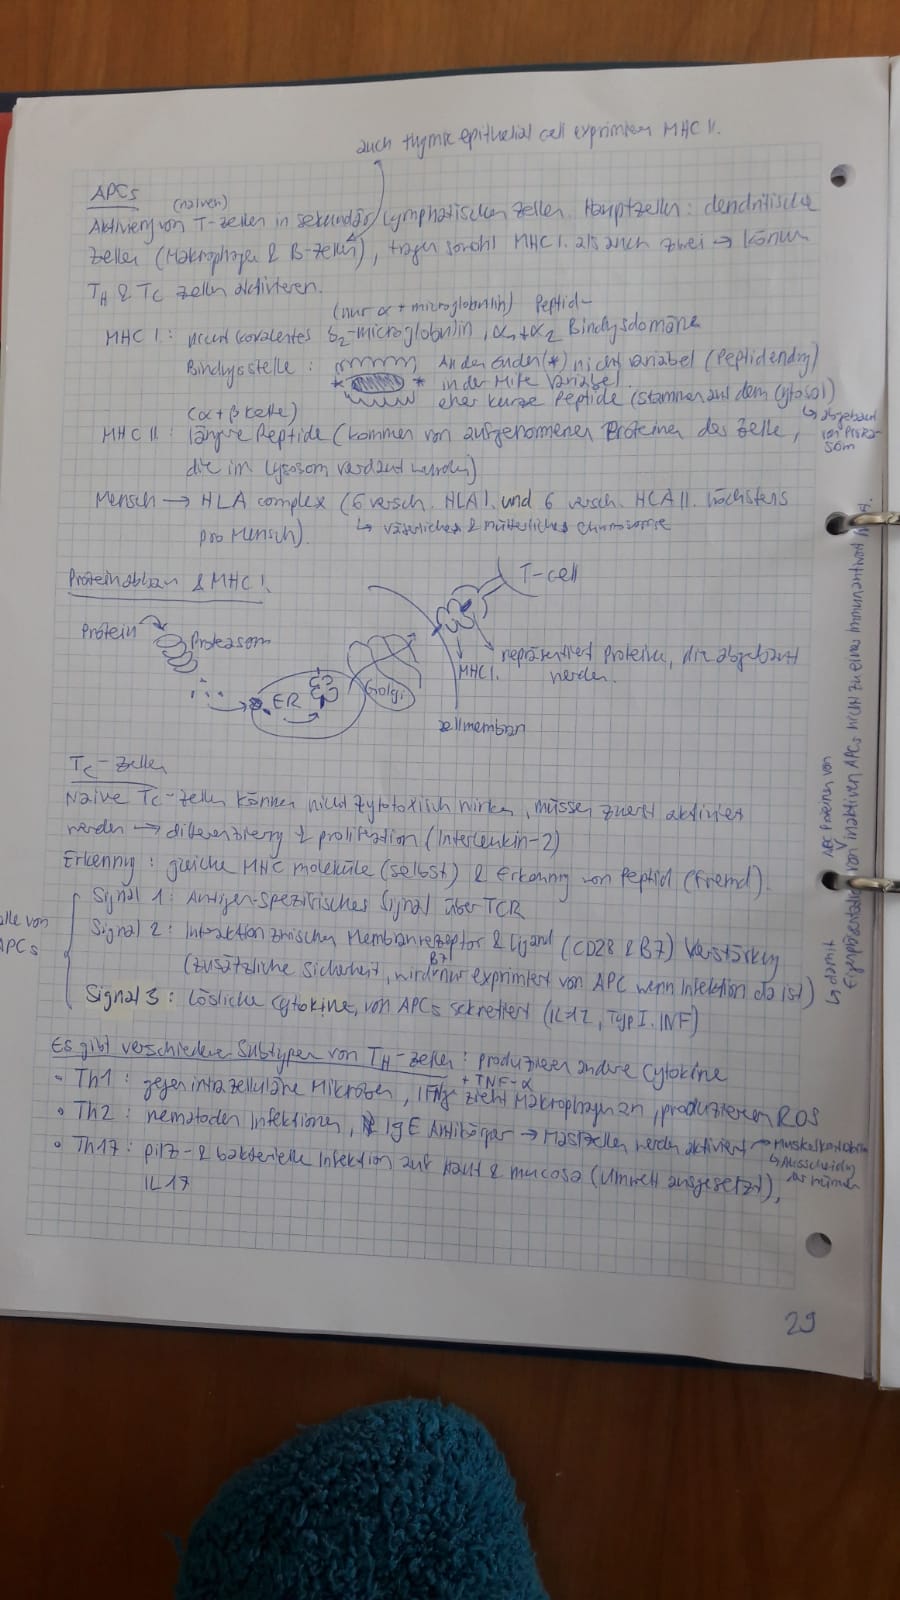 auch thymic epithelial cell exprimieren MHC II.
APCs
(naiven)
Aktivierg von T-Zellen in sekundär lymphatischen Zellen. Hauptzellen: dendritische
Zellen (Makrophagen & B-Zellen), tragen sowohl MHC I. als auch zwei → können
TH & TC Zellen aktivieren.
(nur α + microglobulin) Peptid-
MHC I.: nicht kovalentes β2-microglobulin, α1+α2 Bindgsdomäne
Bindgsstelle: An den Enden (*) nicht variabel (Peptidendg)
* * in der Mitte variabel.
eher kurze Peptide (stammen aus dem Cytosol)
↳ abgebaut
von Protea-
som
(α + β Kette)
MHC II.: längere Peptide (kommen von aufgenommenen Proteinen der Zelle,
die im Lysosom verdaut wurden)
Mensch → HLA complex (6 versch. HLA I. und 6 versch. HLA II. höchstens
pro Mensch). ↳ väterliches & mütterliches Chromosome
Proteinabbau & MHC I.
T-cell
Protein
Proteasom
ER
Golgi
MHC I.
repräsentiert Proteine, die abgebaut
werden.
Zellmembran
TC-Zellen
Naive TC-Zellen können nicht zytotoxisch wirken, müssen zuerst aktiviert
werden → differenzierg & proliferation (Interleukin-2)
Erkenng: gleiche MHC moleküle (selbst) & Erkenng von Peptid (fremd).
alle von
APCs
Signal 1: Antigen-spezifisches Signal über TCR
Signal 2: Interaktion zwischen Membranrezeptor & Ligand (CD28 & B7) Verstärkg
(zusätzliche Sicherheit, B7 wird nur exprimiert von APC wenn Infektion da ist)
Signal 3: lösliche Cytokine, von APCs sekretiert (IL12, Typ I. INF)
↳ damit
Eigenpräsentation von inaktiven APCs nicht zu einer Immunantwort
Es gibt verschiedene Subtypen von TH-Zellen: produzieren andere Cytokine
+ TNF-α
• Th1: gegen intrazelluläre Mikroben, IFNγ zieht Makrophagen an, produzieren ROS
• Th2: nematoden Infektionen, IgE Antikörper → Mastzellen werden aktiviert → Muskelkontraktion
↳ Ausscheidg
der Würmer
• Th17: pilz- & bakterielle Infektion auf Haut & mucosa (Umwelt ausgesetzt),
IL17
29